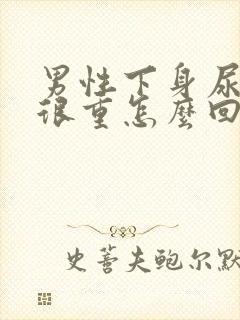 男性下身尿
很重怎麼回
史蒈夫鲍尔默